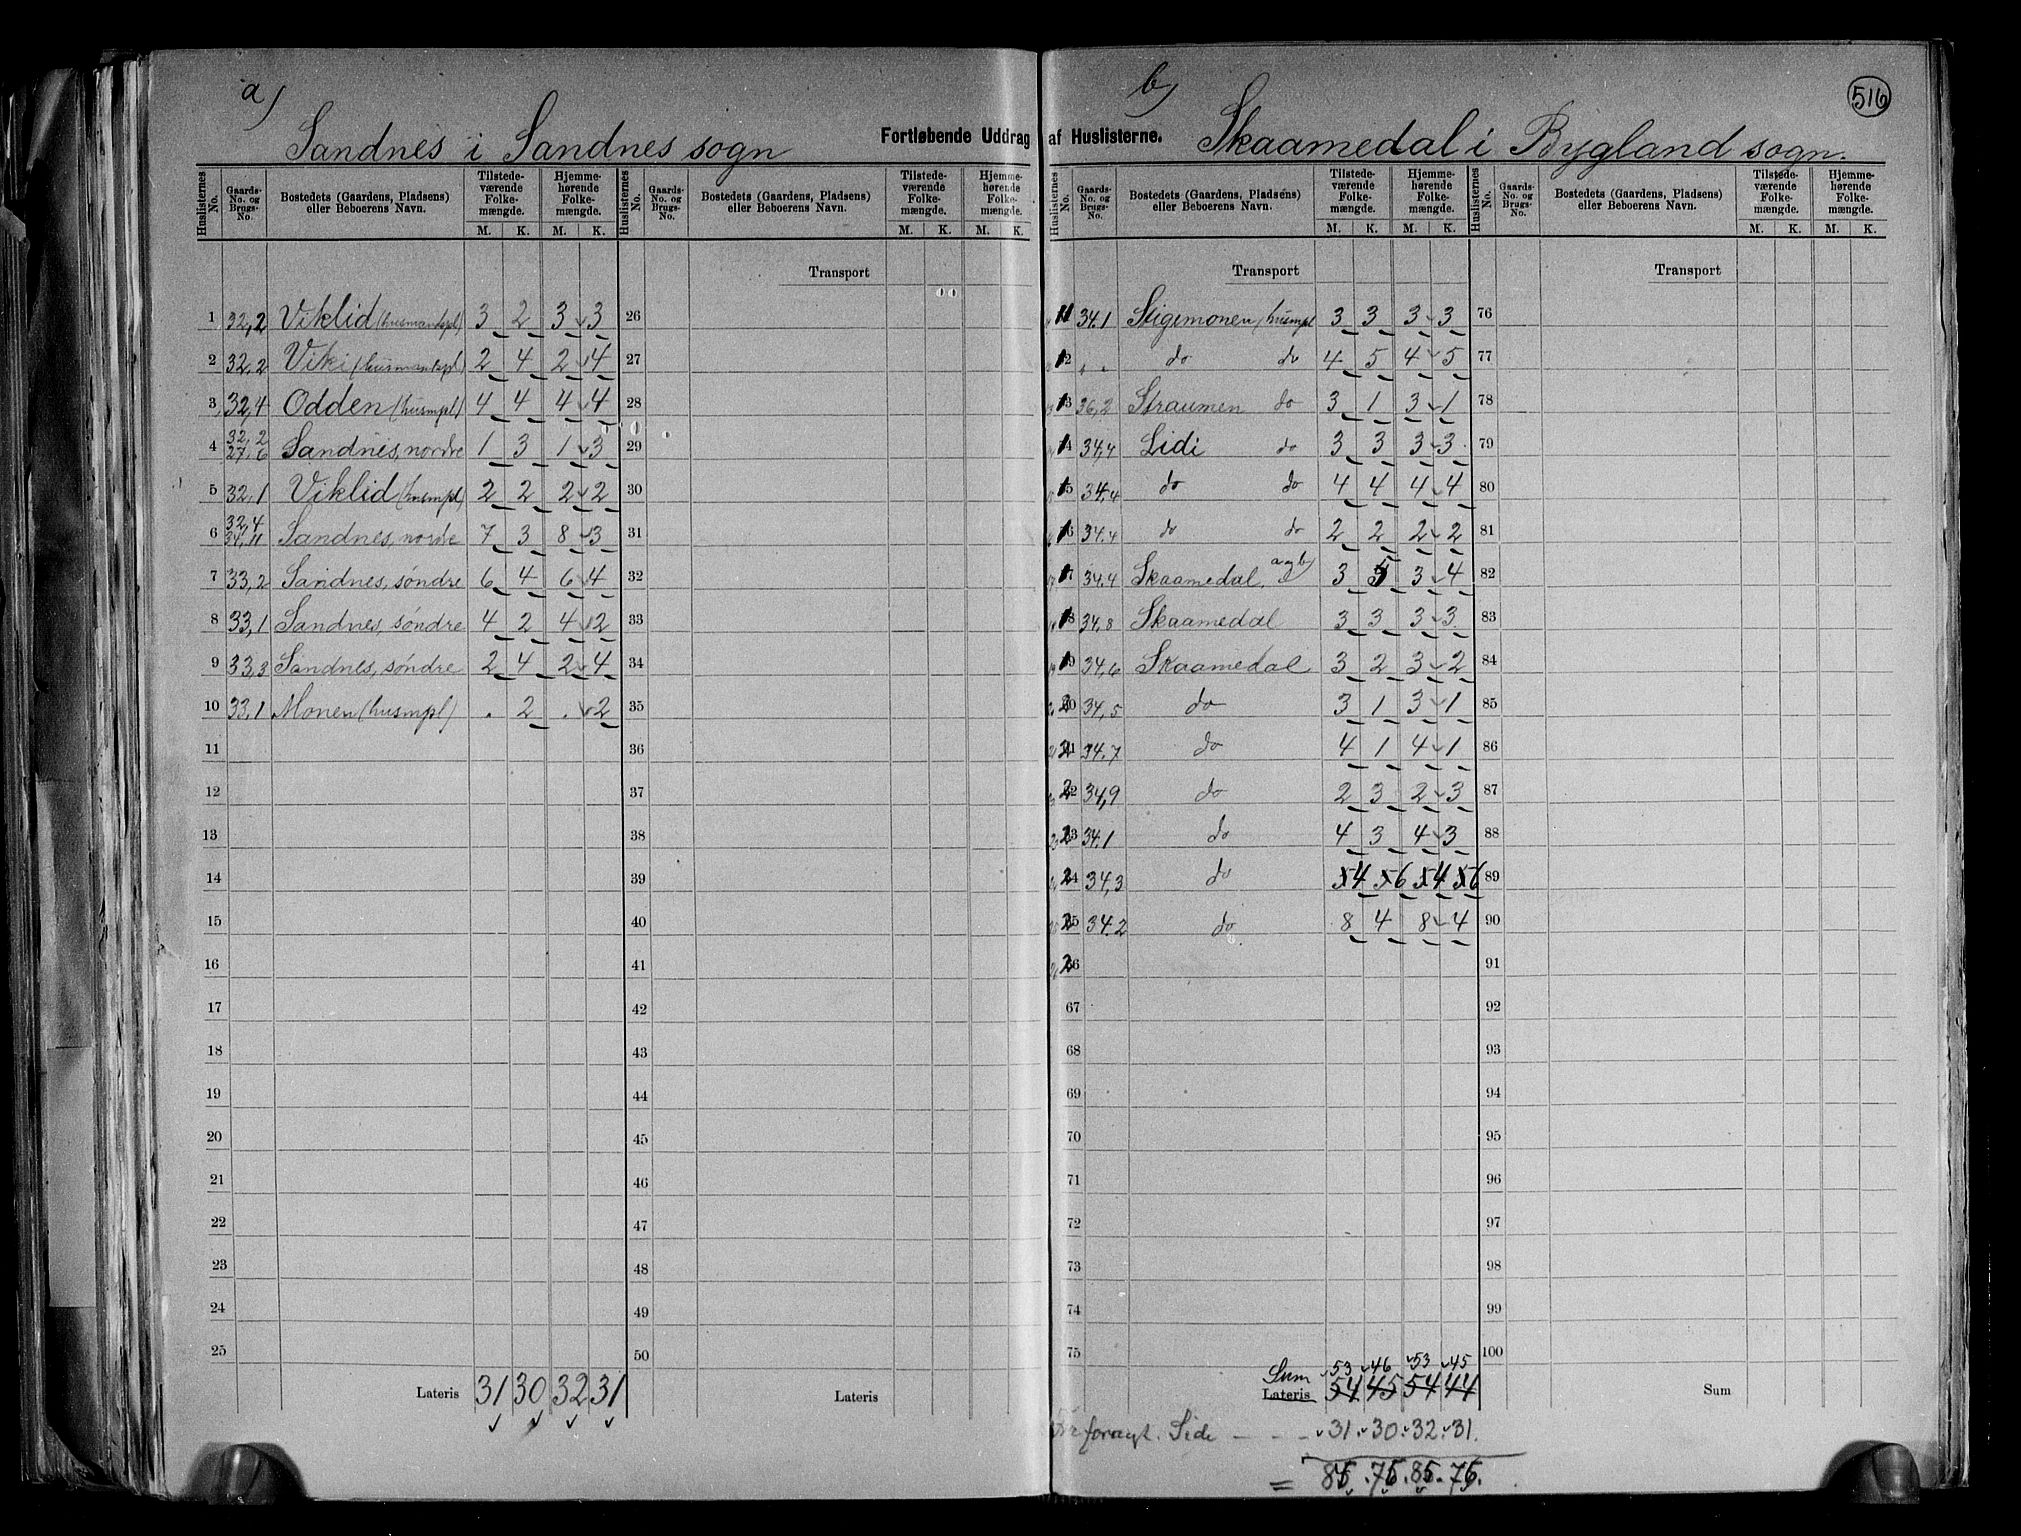 a)
Sandnes i Sandnes sogn
Fortløbende Uddrag
Huslisternes No.
Gaards-No. og Brugs-No.
Bostedets (Gaardens, Pladsens) eller Beboerens Navn.
Tilstedeværende Folkemængde.
Hjemmehørende Folkemængde.
Huslisternes No.
Gaards-No. og Brugs-No.
Bostedets (Gaardens, Pladsens) eller Beboerens Navn.
Tilstedeværende Folkemængde.
Hjemmehørende Folkemængde.
M. K. M. K. M. K. M. K.
Transport
1 32,2 Viklid (husmandspl) 3 2 3 3 26
2 32,2 Viki (husmandspl) 2 4 2 4 27
3 32,4 Odden (husmpl) 4 4 4 4 28
4 32,2 27,6 Sandnes, nordre 1 3 1 3 29
5 32,1 Viklid (husmpl) 2 2 2 2 30
6 32,4 34,11 Sandnes, nordre 7 3 8 3 31
7 33,2 Sandnes, søndre 6 4 6 4 32
8 33,1 Sandnes, søndre 4 2 4 2 33
9 33,3 Sandnes, søndre 2 4 2 4 34
10 33,1 Monen (husmpl) . 2 . 2 35
11 36
12 37
13 38
14 39
15 40
16 41
17 42
18 43
19 44
20 45
21 46
22 47
23 48
24 49
25 50
Lateris 31 30 32 31 Lateris
b)
516
af Huslisterne.
Skaamedal i Bygland sogn.
Huslisternes No.
Gaards-No. og Brugs-No.
Bostedets (Gaardens, Pladsens) eller Beboerens Navn.
Tilstedeværende Folkemængde.
Hjemmehørende Folkemængde.
Huslisternes No.
Gaards-No. og Brugs-No.
Bostedets (Gaardens, Pladsens) eller Beboerens Navn.
Tilstedeværende Folkemængde.
Hjemmehørende Folkemængde.
M. K. M. K. M. K. M. K.
Transport Transport
11 34.1 Stigemonen (husmpl 3 3 3 3 76
12 " " do do 4 5 4 5 77
13 36,2 Straumen do 3 1 3 1 78
14 34,4 Lidi do 3 3 3 3 79
15 34,4 do do 4 4 4 4 80
16 34.4 do do 2 2 2 2 81
17 34.4 Skaamedal, a og b 3 5 3 4 82
18 34,8 Skaamedal 3 3 3 3 83
19 34,6 Skaamedal 3 2 3 2 84
20 34,5 do 3 1 3 1 85
21 34.7 do 4 1 4 1 86
22 34,9 do 2 3 2 3 87
23 34.1 do 4 3 4 3 88
24 34,3 do 5 4 5 6 5 4 5 6 89
25 34.2 do 8 4 8 4 90
26 91
67 92
68 93
69 94
70 95
71 96
72 97
73 98
74 99
75 100
Sum 53 46 53 45
Lateris 54 45 54 44 Sum
foragt. Side - - - 31. 30. 32. 31.
= 85. 75. 85. 75.